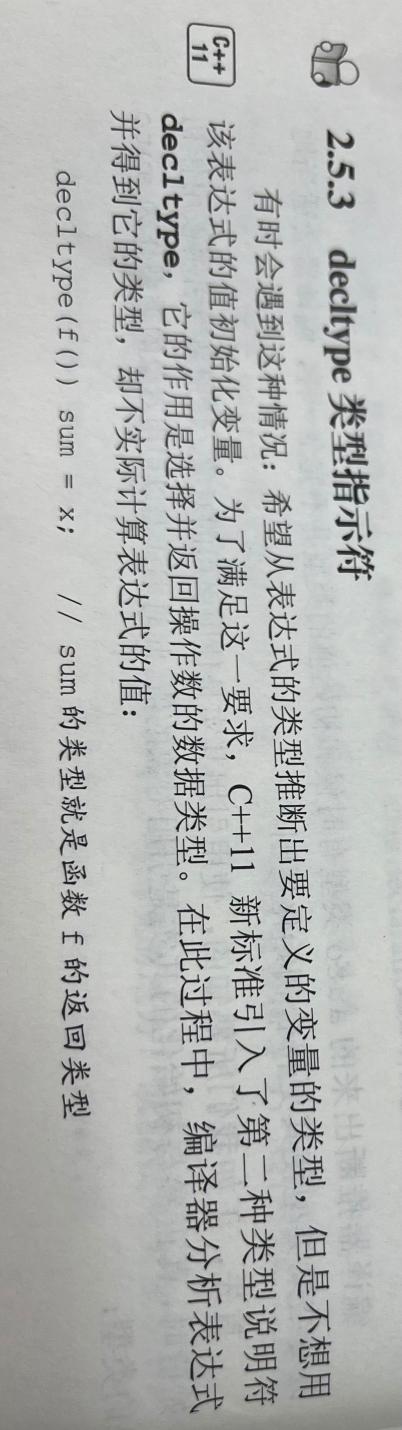 2.5.3 decltype 类型指示符
有时会遇到这种情况：希望从表达式的类型推断出要定义的变量的类型，但是不想用
C++
11
该表达式的值初始化变量。为了满足这一要求，C++11 新标准引入了第二种类型说明符
decltype，它的作用是选择并返回操作数的数据类型。在此过程中，编译器分析表达式
并得到它的类型，却不实际计算表达式的值：
decltype(f()) sum = x; // sum 的类型就是函数 f 的返回类型